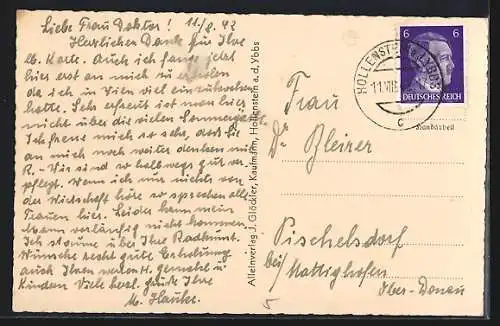 Liebe Frau Doktor! 11./8. 42
Herzlichen Dank für Ihre
lb. Karte. Auch ich fange jetzt
hier erst an mich zu erholen
da ich in Wien viel einzukochen
hatte. Sehr erfreut ist man hier
nicht über die vielen Sommergäste.
Ich freue mich so sehr, dass Sie
an mich noch weiter denken
R. Wir sind so halbwegs gut ver-
pflegt. Wenn ich nur nichts von
der Wirtschaft höre so sprechen alle
Frauen hier. Leider kann mein
Mann vorläufig nicht kommen.
Ich staune über Ihre Radkunst.
Wünsche recht gute Erholung
auch Ihrem Herrn Gemahl u.
Kindern. Viele herzl. Grüße Ihre
M. Hauke.
Alleinverlag J. Glöckler, Kaufmann, Hollenstein a. d. Ybbs
HOLLENSTEIN
11.VIII.
c
6 6
DEUTSCHES REICH
Frau
Dr. Bleirer
Pischelsdorf
bei Mattighofen
Ober-Donau